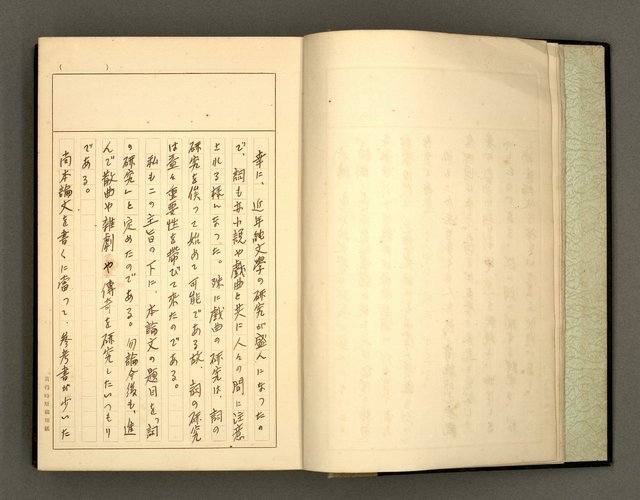 幸に、近年純文學の研究が盛んになつたの
で、詞も亦小説や戯曲と共に人々の間に注意
される様になつた。殊に戯曲の研究は、詞の
研究を俟つて始めて可能である故、詞の研究
は益々重要性を帶びて来たのである。
私もこの主旨の下に、本論文の題目を「詞
の研究」と定めたのである。勿論今後も、進
んで散曲や雑劇や傳奇を研究したいつもり
である。
尚本論文を書くに當つて、參考書が少いた